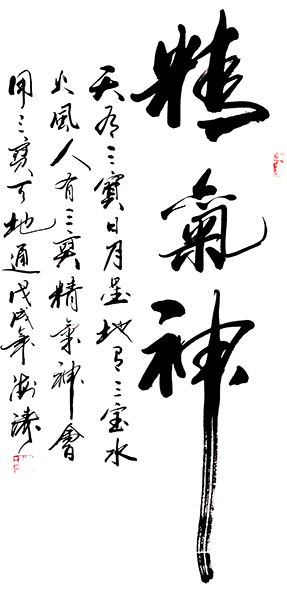 精氣神
天有三寶日月星地有三宝水
火風人有三寶精氣神會
用三寶天地通戊戌年海濤